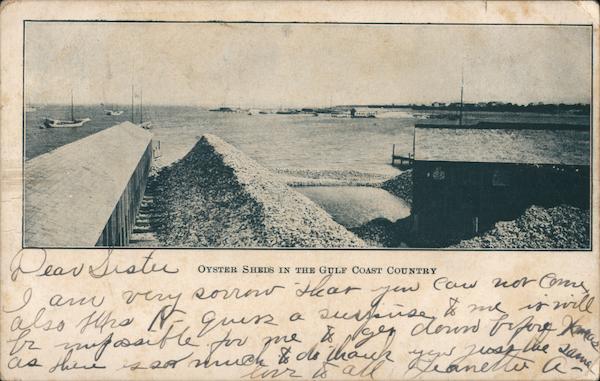 OYSTER SHEDS IN THE GULF COAST COUNTRY
Dear Sister
I am very sorrow that you can not come
also Mrs N. quite a surprise to me it will
be impossible for me to get down before Xmas
as there is so much to do thank you just the same
love to all Jeanette A-